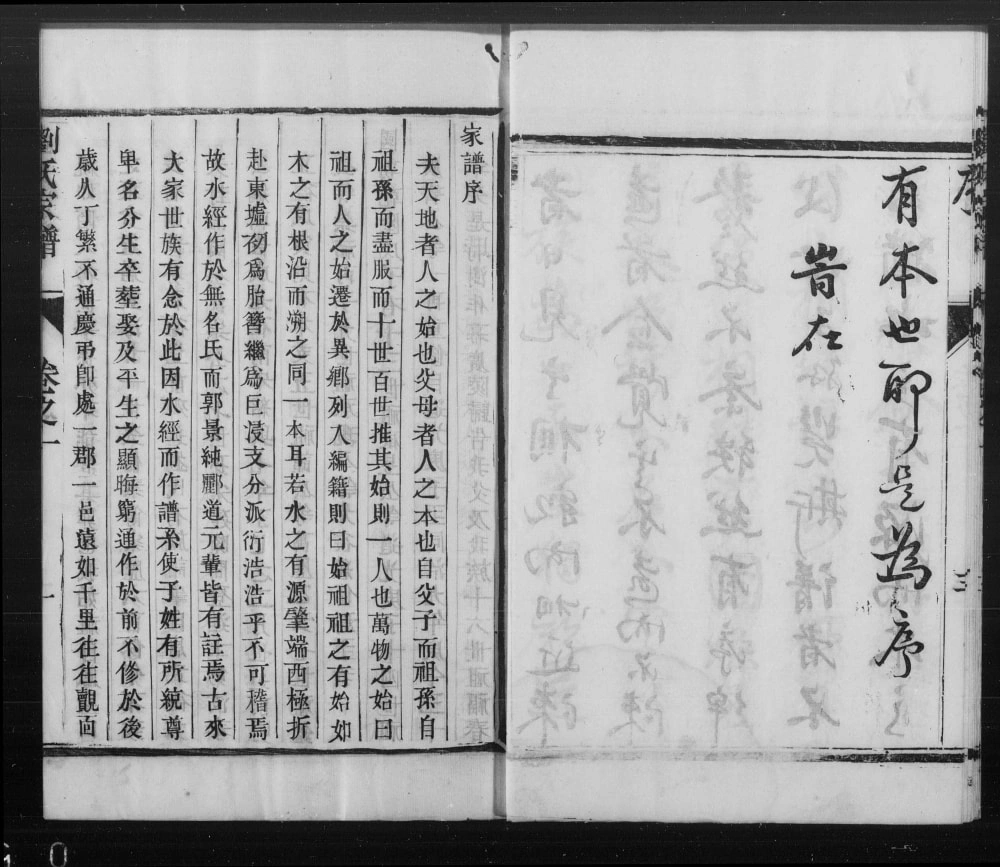 序
三
有本也耶是為序
岢在
家譜序
夫天地者人之始也父母者人之本也自父子而祖孫自
祖孫而盡服而十世百世推其始則一人也萬物之始曰
祖而人之始遷於異鄉列入編籍則曰始祖祖之有始如
木之有根沿而溯之同一本耳若水之有源肇端西極折
赴東墟初爲胎簪繼爲巨浸支分派衍浩浩乎不可稽焉
故水經作於無名氏而郭景純酈道元輩皆有註焉古來
大家世族有念於此因水經而作譜系使子姓有所統尊
卑名分生卒塟娶及平生之顯晦窮通作於前不修於後
歳久丁繁不通慶弔卽處一郡一邑遠如千里往往覿面
劉氏宗譜
卷之一
一